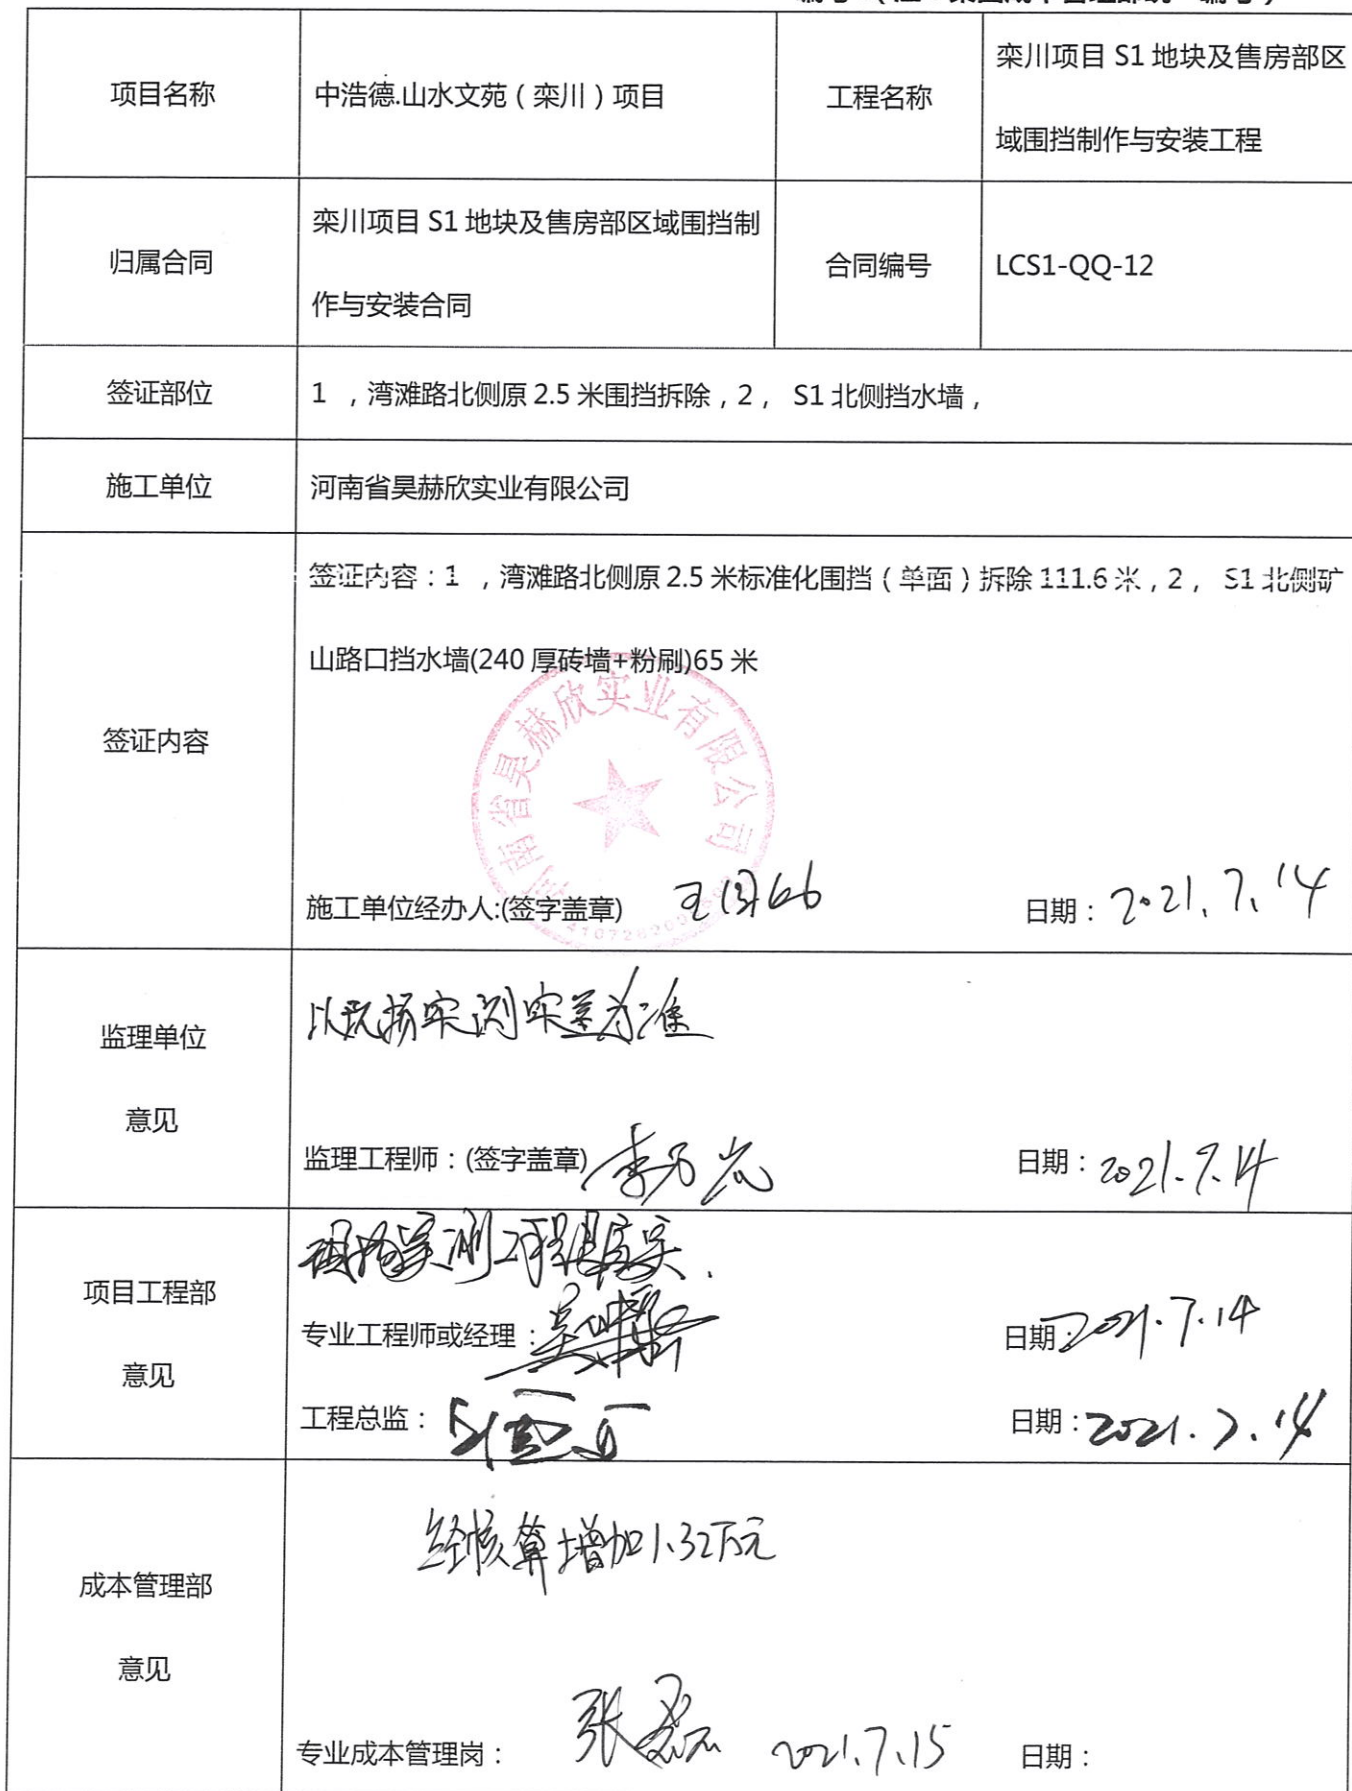 项目名称
中浩德.山水文苑（栾川）项目
工程名称
栾川项目 S1 地块及售房部区
域围挡制作与安装工程
归属合同
栾川项目 S1 地块及售房部区域围挡制
作与安装合同
合同编号
LCS1-QQ-12
签证部位
1 ，湾滩路北侧原 2.5 米围挡拆除，2， S1 北侧挡水墙，
施工单位
河南省昊赫欣实业有限公司
签证内容
签证内容：1 ，湾滩路北侧原 2.5 米标准化围挡（单面）拆除 111.6 米，2， S1 北侧矿
山路口挡水墙(240 厚砖墙+粉刷)65 米
河南省昊赫欣实业有限公司
施工单位经办人:(签字盖章)
日期：2021.7.14
监理单位
意见
以现场实测实量为准
监理工程师：(签字盖章)
日期：2021.7.14
项目工程部
意见
现场实测工程量属实.
专业工程师或经理：
日期：2021.7.14
工程总监：
日期：2021.7.14
成本管理部
意见
经核算增加1.32万元
专业成本管理岗：
张磊
2021.7.15
日期：